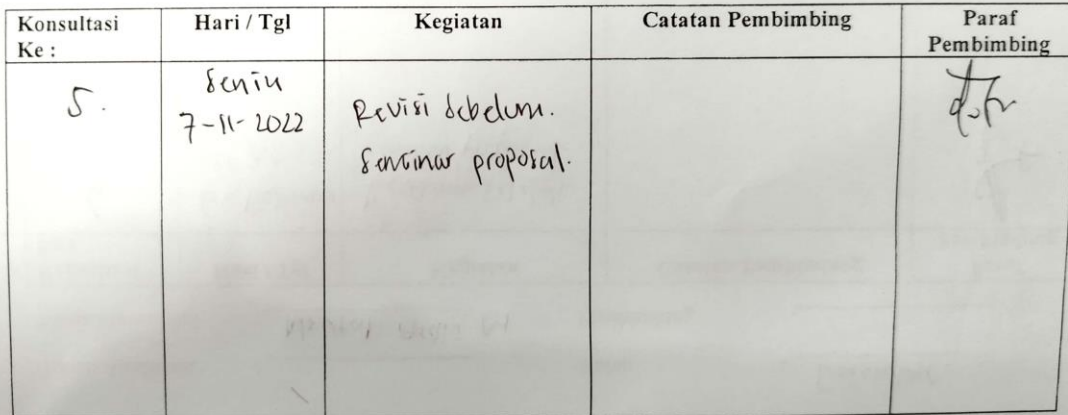 Konsultasi Ke :
Hari / Tgl
Kegiatan
Catatan Pembimbing
Paraf Pembimbing
5.
Senin
7-11-2022
Revisi sebelum.
Seminar proposal.